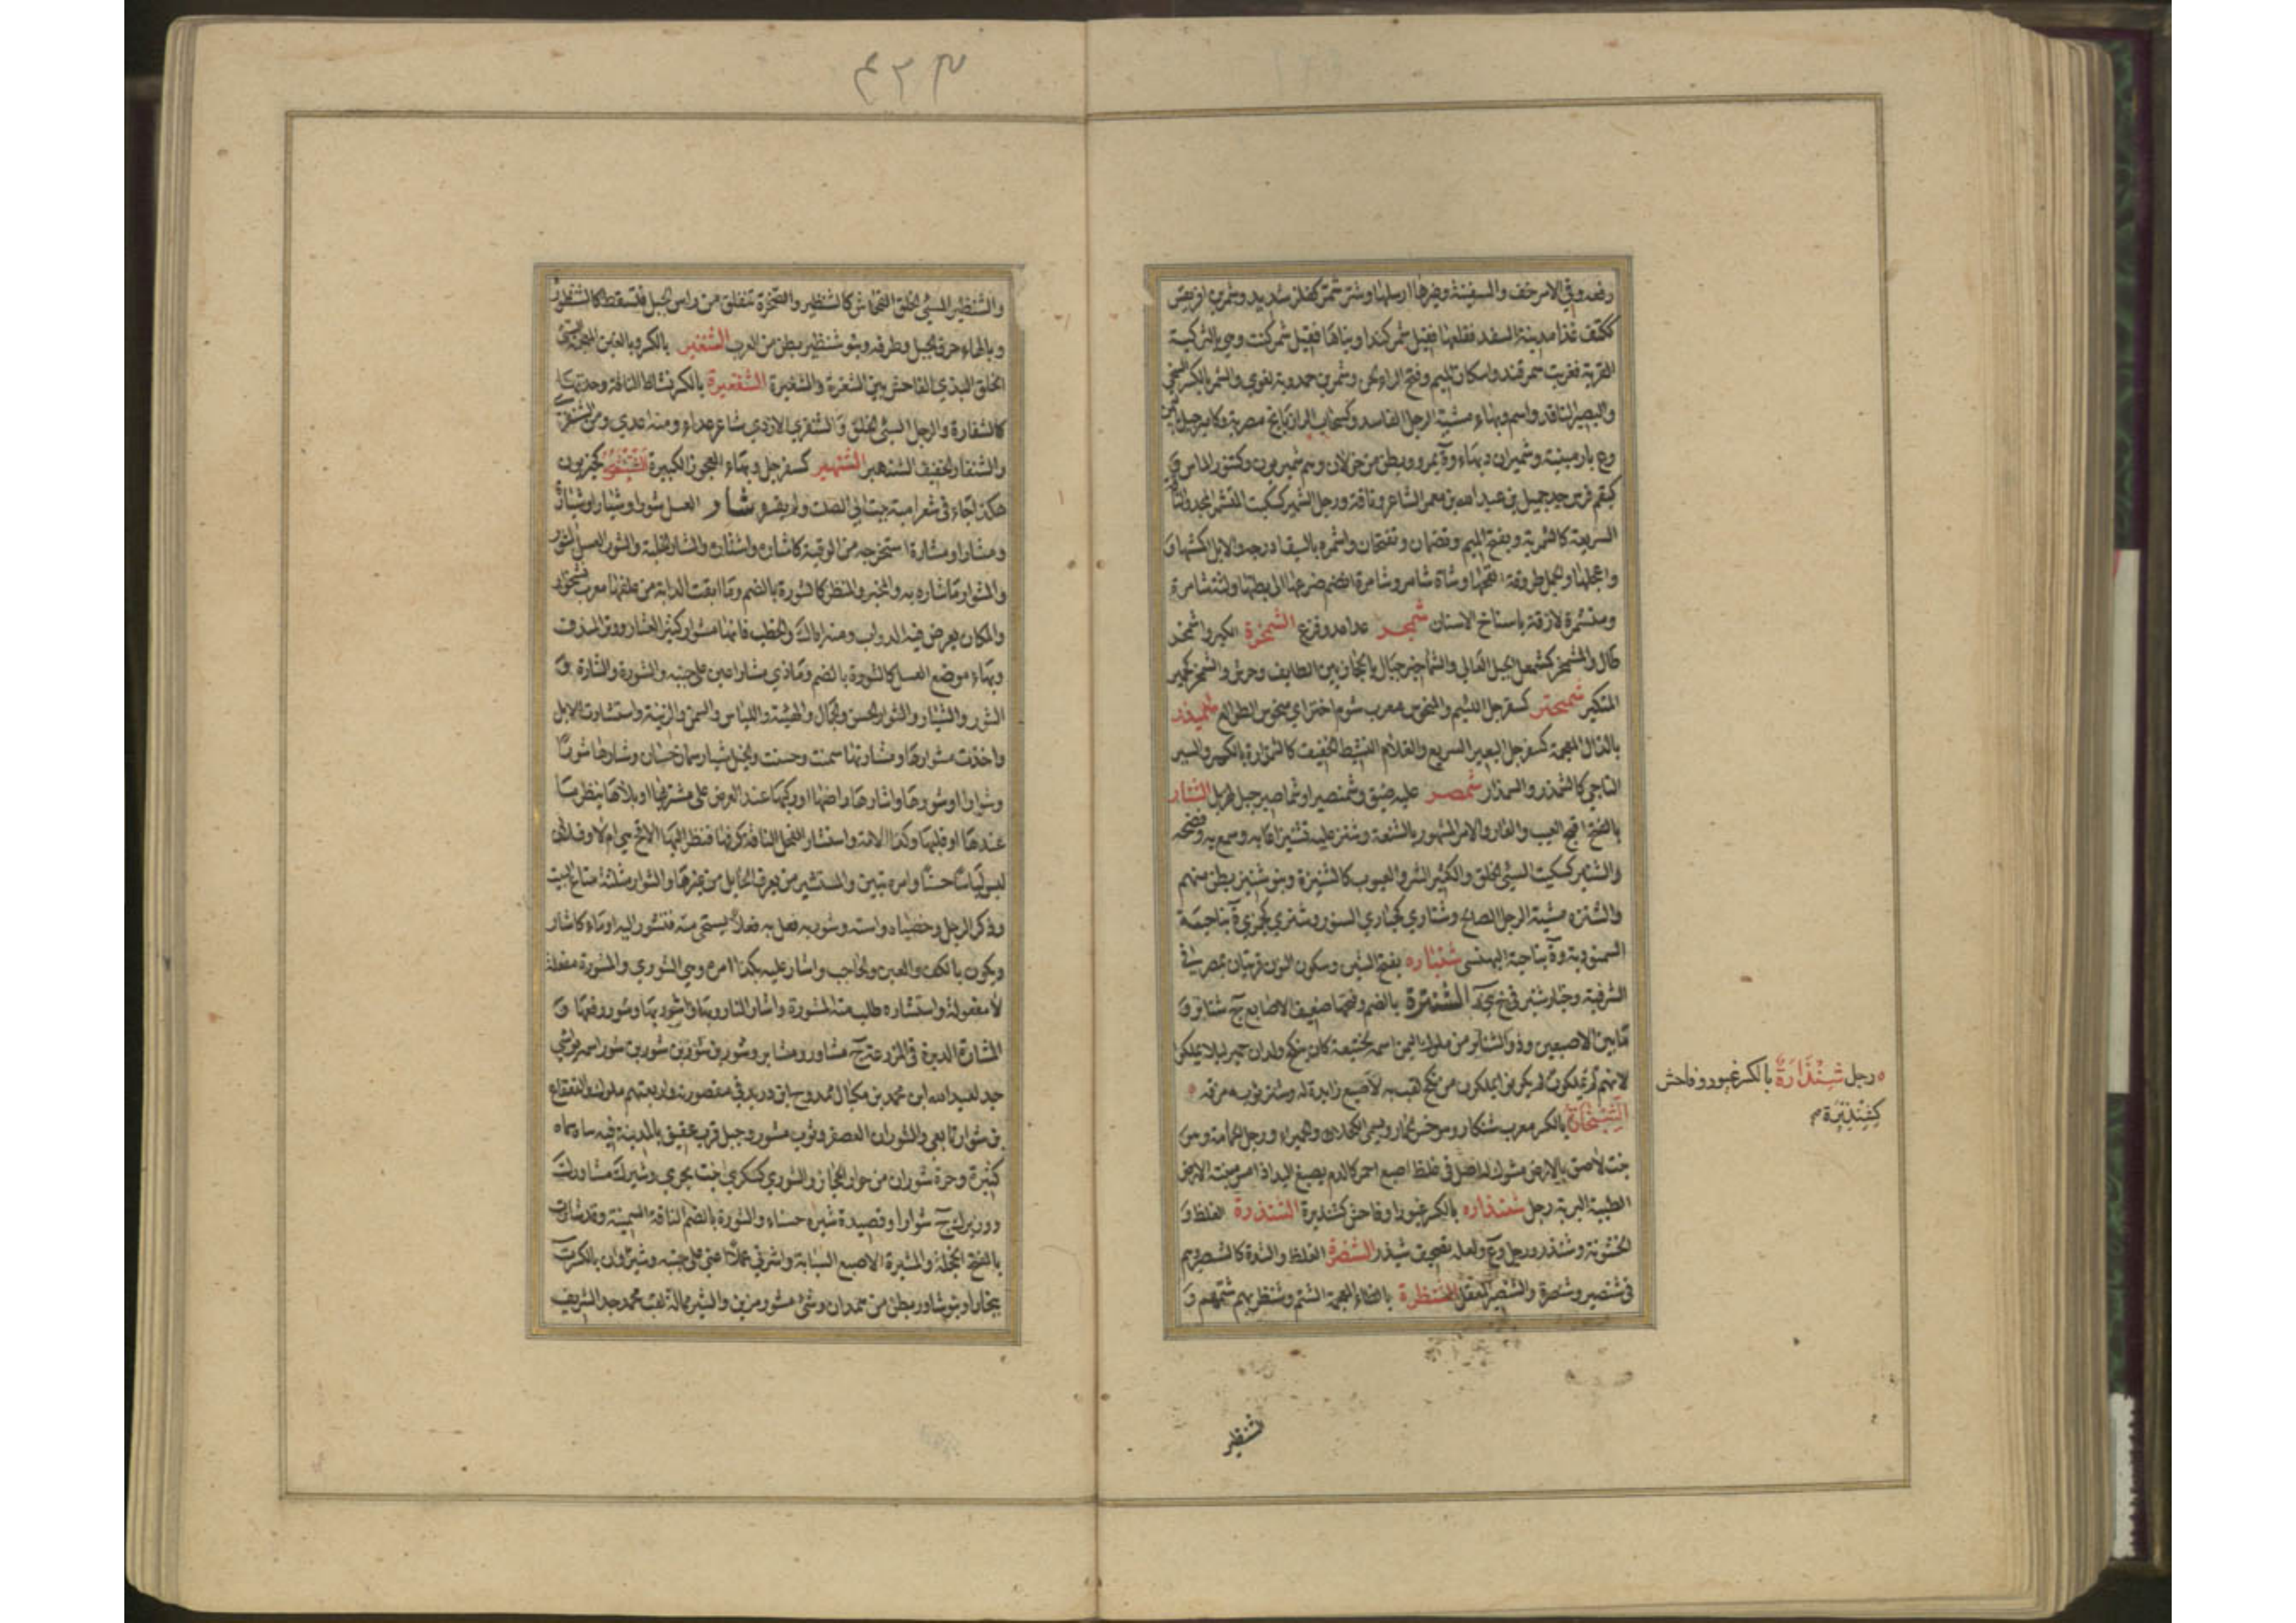 رفعه وفي الامر خف والسفينة وغيرها ارسلها وشر شمر كفلز شديد وشمر بن افريقش
ككتف غزا مدينة السغد فقلعها فقيل شمركند او بناها فقيل شمركنت وهي بالتركية
القرية فعربت سمرقند واسكان الميم وفتح الراء لحن وشمر بن حمدوية لغوي والشمر بالكسر السخي
والبصير الناقد واسم وبهاء مشية الرجل الفاسد وكسحاب الرازيانج مصرية وكامير جبل باليمن
وع بارمينية وشميران د بهاء وة بمرو وبطن من خولان وهم شميريون وكتنور الماس و
كبقم فرس جد جميل بن عبد الله بن معمر الشاعر وناقة ورجل الشمير كسكيت المتشمر المجد والناقة
السريعة كالشمرية وبفتح الميم وتضمان وتفتحان واشمره بالسيف ادرجه والابل اكمشها و
واعجلها والجمل طروقة القحها وشاة شامر وشامرة انضم ضرعها الى بطنها ولثة شامرة
ومتشمرة لازقة باسناخ الاسنان شمجر عدا عدو فزع الشمخرة الكبر واشمخر
طال والمشمخر كمشمعل الجبل العالي والشماخير جبال بالحجاز بين الطايف وجرش والشمخر كخمير
المتكبر شمختر كسفرجل اللئيم والمنحوس معرب شوم اختر اي منحوس الطوالع شميذر
بالذال المعجمة كسفرجل البعير السريع والغلام النشيط الخفيف كالشمذارة بالكسر والسير
الناجي كالشمذر والشمذار شمصر عليه ضيق وشمنصير او شماصير جبل لهذيل الشنار
بالفتح اقبح العيب والعار والامر المشهور بالشنعة وشنر عليه تشنيرا عابه وسمع به وفضحه
والشنير كسكيت السيئ الخلق والكثير الشر والعيوب كالشنيرة وبنو شنير بطن منهم
والشنرة مشية الرجل الصالح وشناري كحباري السنور وشنري كجمزي ة بناحية
السمنودية وة بناحية البهنسي شنباره بفتح الشين وسكون النون قريتان بمصر في
الشرقية وخيار شنبر في خ ي ر الشنترة بالضم وفتحها صغيف الاصابع ج شناتر و
ما بين الاصبعين وذو الشناتر من ملوك اليمن اسمه لختيعة كان ينكح ولدان حمير ليلا يملكوا
لانهم لم يملكون من نكح لقب به لاصبع زايدة له وشنتر ثوبه مزقه ٥
الشنجار بالكسر معرب شنكار وهو خس الحمار ويسمى الكحلاء والحميراء ورجل الحمامة وهو
نبت لاصق بالارض مشوك لداصل في غلظ اصبع احمر كالدم يصبغ اليد اذا مس منبته الارض
الطيبة التربة رجل شنذاره بالكسر غيور او فاحش كشنذيرة الشنذرة الغلظ و
الخشونة وشنذر رجل وع ولعله تصحيف شيذر الشنصرة الغلظ والشدة كالشنصير هم
في شنصير وشنصرة والشنصير المعقل الشنظرة بالظاء المعجمة الشتم وشنظر بهم شتمهم و
٥ رجل شِنْذَارَةٌ بالكسر غيور وفاحش
كشِنْذِيْرَةٍ م
شنظر
٤٢٣
والشنظير السيئ الخلق الفحاش كالشنظير والصخرة تنفلق من راس الجبل فتسقط كالشنظورة
وبالهاء حرف الجبل وطرفه وبنو شنظير بطن من العرب الشنغير بالكسر وبالغين المعجمة السيئ
الخلق البذي الفاحش بين الشنغرة والشنغيرة الشنفيرة بالكسر نشاط الناقة وحدتها
كالشنفارة والرجل السيئ الخلق والشنفري الازدي شاعر عداء ومنه اعدي من الشنفري
والشنفار الخفيف الشنهبر الشنهبر كسفرجل وبهاء العجوز الكبيرة الشيتعور كحيزبون
هكذا جاء في شعر امية بن ابي الصلت ولم يفسر شار العسل شورا وشيارا وشيارة
ومشارا ومشارة استخرجه من الوقبة كاشار واشتار واستشار والشور العسل المشور
والمشوار ما شاره به والمخبر والمنظر كالشورة بالضم وما ابقت الدابة من علفها معرب نشخوار
والمكان يعرض فيه الدواب ومنه اياك والخطب فانها مشوار كثير العثار ووتر المندف
وبهاء موضع العسل كالشورة بالضم وماذي مشار اعين على جنيه والشورة والشارة و
الشور والشيار والشوار الحسن والجمال والهيئة واللباس والسمن والزينة واستشارت الابل
واخذت مشوارها ومشارتها سمنت وحسنت وخيل شيار سمان حسان وشارها شورا
وشوارا وشورها واشارها راضها او ركبها عند العرض على مشتريها او بلاها ينظر ما
عندها او قلبها وكذا الامة واستشار الفحل الناقة كرفها فنظر اليها الاقح هي ام لا وفلان
لبس لباسا حسنا وامره تبين والمستشير من يعرف الحايل من غيرها والشوار مثلثة متاع البيت
وذكر الرجل وخصياه واسته وشور به فعل به فعلا يستحي منه فتشور اليه اوماء كاشار
ويكون بالكف والعين والحاجب واشار عليه بكذا امره وهي الشوري والمشورة مفعلة
لا مفعولة واستشاره طلب منه المشورة واشار النار وبها واشور بها وشور رفعها و
المشارة الدبرة في المزرعة ج مشاور ومشاير وشور بن شور بن شور بن شور اسمه فيروشي
جد لعبد الله ابن محمد بن ميكال ممدوح ابن دريد في مقصورته واربعتهم ملوك والقعقاع
بن شوار تابعي والشوران العصفر وثوب مشور وجبل قرب عقيق بالمدينة فيه مياه سماء
كثيرة وحرة شوران من حرار الحجاز والشوري كسكري نبت بحري وشيرك مشاورك
ووزيرك ج شوارا وقصيدة شيرة حسناء والشورة بالضم الناقة السمينة وقد شارت
بالفتح الخجلة والمشيرة الاصبع السبابة واشرني عسلا اعني على جنيه وشيروان بالكسر ة
ببخارا وبنو شاور بطن من همدان وشئ مشور مزين والشير ممالة لقب محمد جد الشريف